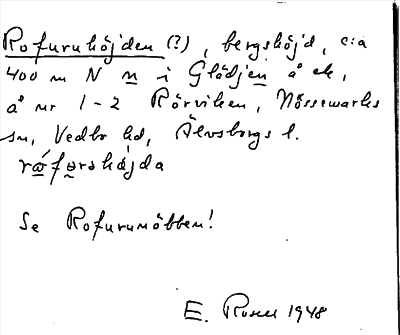 Rofuruhöjden (?), bergshöjd, c:a
400 m N n i Glädjen å ek,
å nr 1-2 Rörviken, Nössemarks
sn, Vedbo hd, Älvsborgs l.
Se Rofurumöbben!
E. 1948